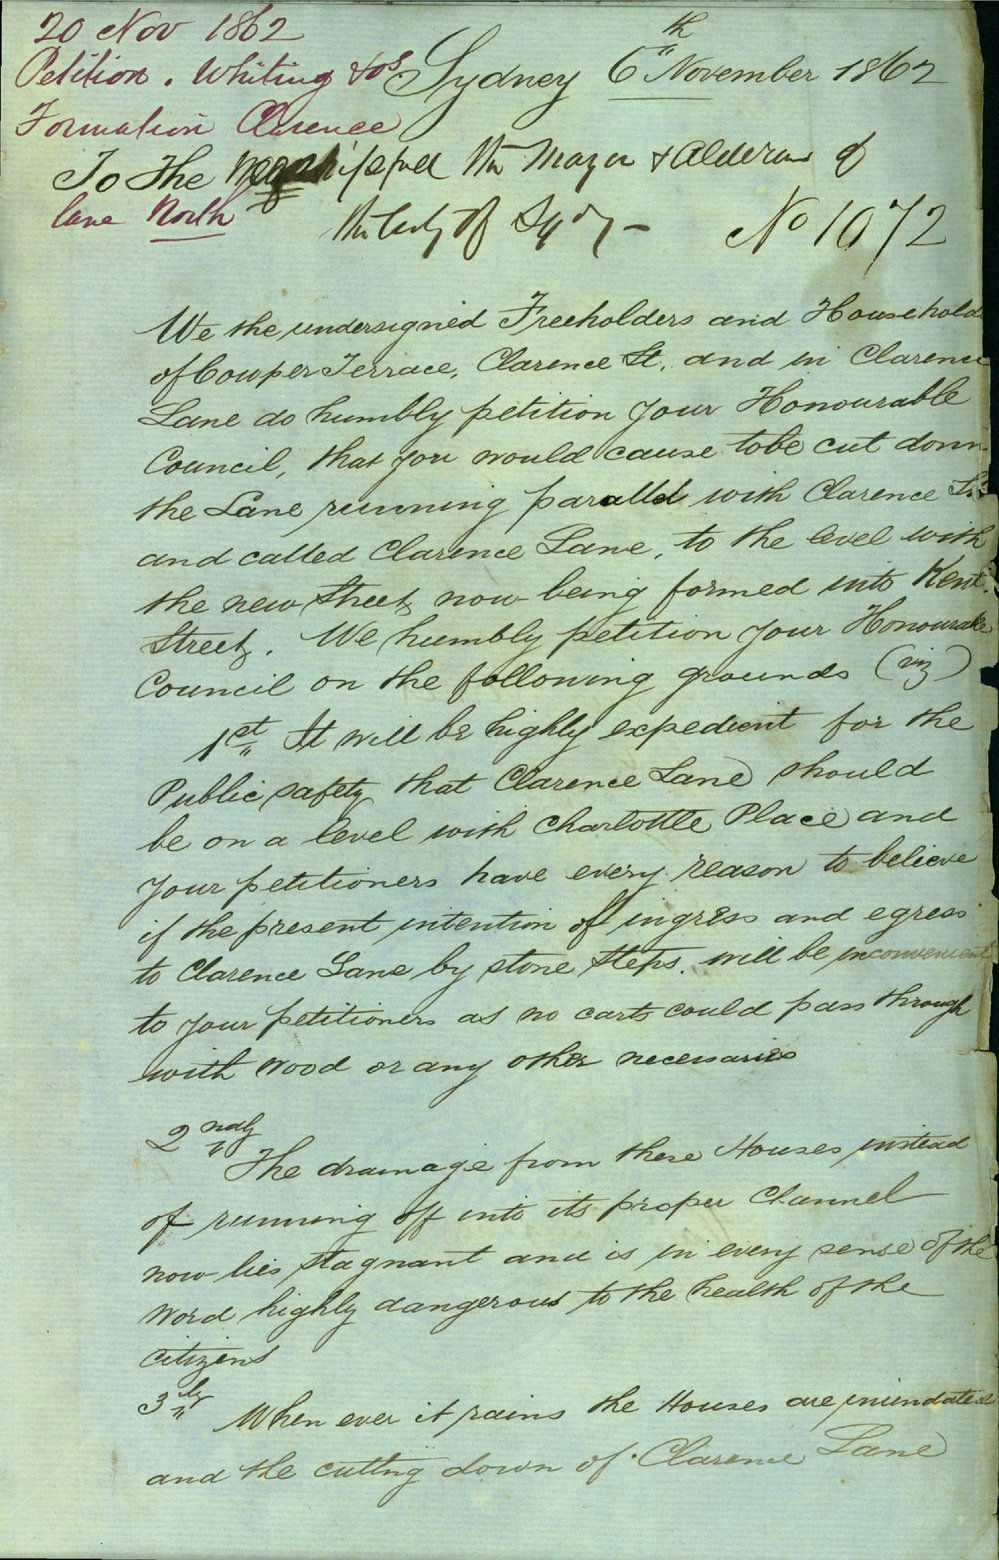 20 Nov 1862
Petition. Whiting & ors
Formation Clarence
lane North
Sydney 6th November 1862
To the Worshipful the Mayor & Aldermen of
the City of Sydy -
No 1072
We the undersigned Freeholders and Household
of Cowper Terrace, Clarence St, and in Clarence
Lane do humbly petition your Honourable
Council, that you would cause tobe cut down
the Lane running paralld with Clarence St
and called Clarence Lane, to the level with
the new Street, now being formed into Kent
Street. We humbly petition your Honourable
Council on the following grounds (viz)
1st It will be highly expedient for the
Public safety that Clarence Lane should
be on a level with Charlottle Place and
your petitioners have every reason to believe
if the present intention of ingress and egress
to Clarence Lane by stone steps. will be inconvenient
to your petitioners as no carts could pass through
with wood or any other necessaries
2ndly
The drainage from these Houses instead
of running off into its proper Channel
now lies stagnant and is in every sense of the
word highly dangerous to the health of the
citizens
3ly When ever it rains the Houses are inundated
and the cutting down of Clarence Lane